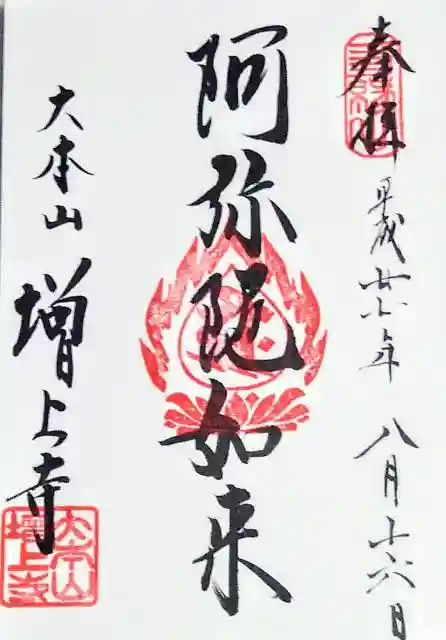 奉拝
平成廿七年 八月十六日
阿弥陀如来
大本山 増上寺
大本山
増上寺